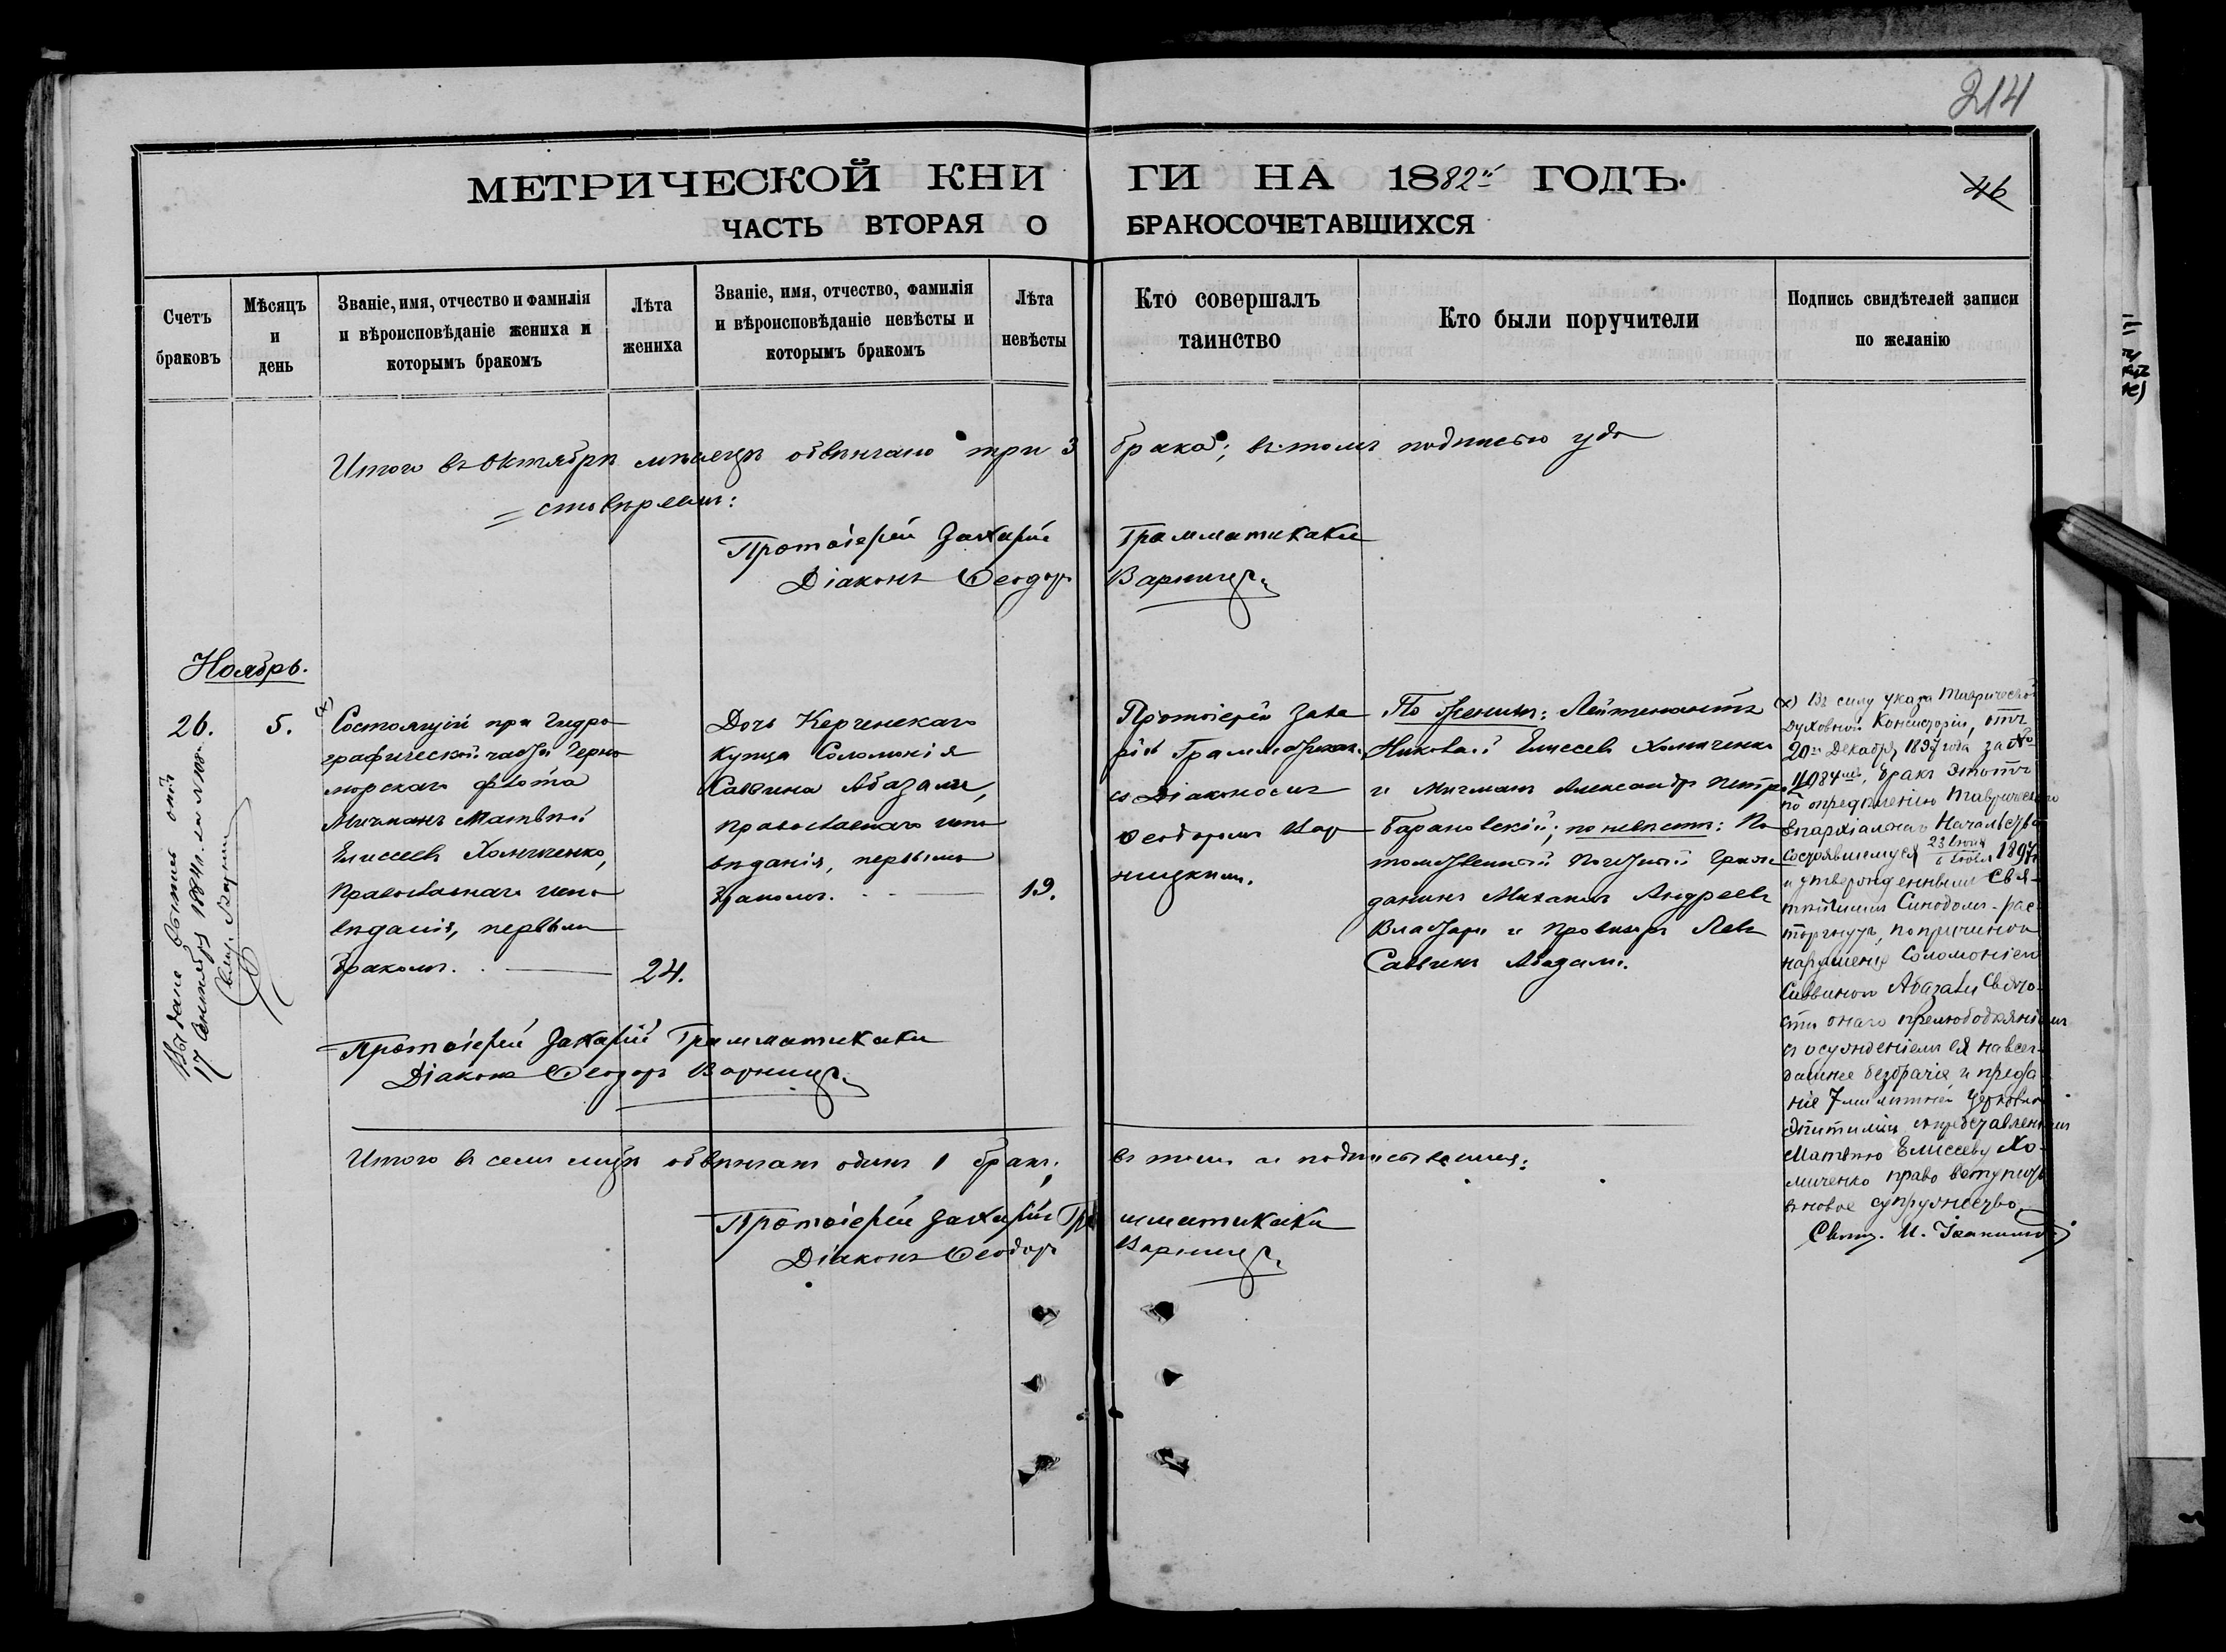 214
МЕТРИЧЕСКОЙ КНИГИ НА 1882й ГОДЪ.
46
ЧАСТЬ ВТОРАЯ О БРАКОСОЧЕТАВШИХСЯ
Счетъ браковъ
Мѣсяцъ и день
Званіе, имя, отчество и фамилія
и вѣроисповѣданіе жениха и
которымъ бракомъ
Лѣта жениха
Званіе, имя, отчество, фамилія
и вѣроисповѣданіе невѣсты и
которымъ бракомъ
Лѣта невѣсты
Кто совершалъ
таинство
Кто были поручители
Подпись свидѣтелей записи
по желанію
Итого въ Октябрѣ мѣсяцѣ обвѣнчано три 3 брака; въ томъ подписью удо
=стовѣряемъ:
Протоіерей Захарій Грамматикаки
Діаконъ Ѳеодоръ Варницк.
Ноябрь.
26.
5.
(х)
Состоящій при Гидро
графической части Черно
морскаго флота
Мичманъ Матвѣй
Елисеевъ Хомиченко,
Православнаго испо
вѣданія, первымъ
бракомъ.
24.
Дочь Керченскаго
купца Соломонія
Саввина Абазали,
православнаго испо
вѣданія, первымъ
бракомъ.
19.
Протоіерей Заха
рій Грамматикаки
съ Діакономъ
Ѳеодоромъ Вар
ницкимъ.
По женихѣ: Лейтенантъ
Николай Елисеевъ Хомиченко
и Мичманъ Александръ Петровъ
Барановскій; по невѣстѣ: По
томственный Почетный Граж
данинъ Михаилъ Андреевъ
и Провизоръ Левъ
Саввинъ Абазали.
(х) Въ силу указа Таврической
Духовной Консисторіи, отъ
20го Декабря 1897 года за №
11084мъ, бракъ этотъ
по опредѣленію Таврическаго
Епархіальнаго Начальства
состоявшемуся 23 Іюня / 6 Іюля 1897 г.
и утвержденнымъ Свя-
тѣйшимъ Синодомъ - рас
торгнутъ, по причинѣ
нарушенія Соломоніею
Саввиною Абазали свято
сти онаго прелюбодѣяніемъ
съ осужденіемъ ея на всег-
дашнее безбрачіе и преда
ніе 7ми лѣтней церковной
эпитиміи и предоставленіемъ
Матвѣю Елисееву Хо-
миченко право вступить
въ новое супружество.
Свящ. И.
Выдана выпись
17 Сентября 1884 г. за №
Протоіерей Захарій Грамматикаки
Діаконъ Ѳеодоръ Варницк.
Итого въ семъ мцѣ обвѣнчанъ одинъ 1 бракъ; въ томъ и подписываемся:
Протоіерей Захарій Грамматикаки
Діаконъ Ѳеодоръ Варницк.